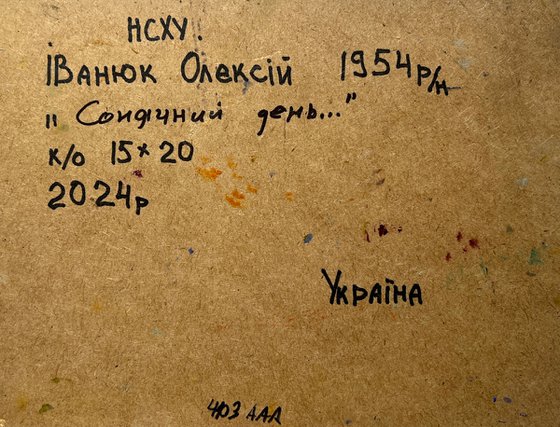 НСХУ.
Іванюк Олексій 1954р/н
„Сонячний день..."
к/о 15×20
2024р
Україна
403 ААА